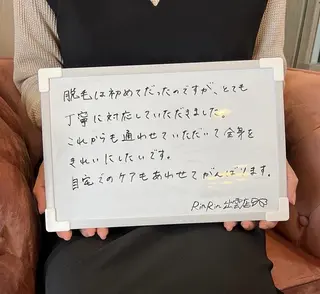 脱毛は初めてだったのですが、とても
丁寧に対応していただきました。
これからも通わせていただいて全身を
きれいにしたいです。
自宅でのケアもあわせてがんばります。
RinRin出雲店